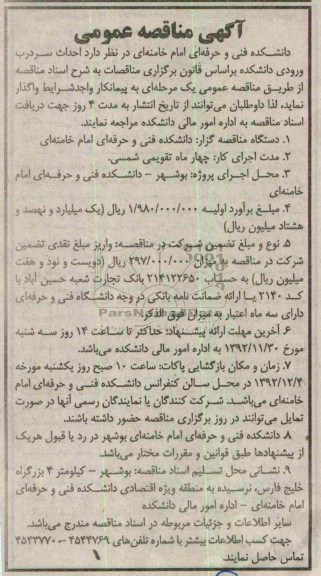 آگهی مناقصه عمومی
دانشـکده فنی و حرفه‌ای امام خامنه‌ای در نظر دارد احداث سـردرب
ورودی دانشکده براساس قانون برگزاری مناقصات به شرح اسناد مناقصه
از طریـق مناقصه عمومی یک مرحله‌ای به پیمانکار واجدشـرایط واگذار
نماید، لذا داوطلبان می‌توانند از تاریخ انتشار به مدت ۴ روز جهت دریافت
اسناد مناقصه به اداره امور مالی دانشکده مراجعه نمایند.
۱. دستگاه مناقصه گزار: دانشکده فنی و حرفه‌ای امام خامنه‌ای
۲. مدت اجرای کار: چهار ماه تقویمی شمسی.
۳. محـل اجـرای پروژه: بوشـهر – دانشـکده فنی و حرفـه‌ای امام
خامنه‌ای
۴. مبلـغ برآورد اولیـه ۱/۹۸۰/۰۰۰/۰۰۰ ریال (یک میلیارد و نهصد و
هشتاد میلیون ریال)
۵. نوع و مبلغ تضمین شـرکت در مناقصـه: واریز مبلغ نقدی تضمین
شرکت در مناقصه به میزان ۲۹۷/۰۰۰/۰۰۰ ریال (دویست و نود و هفت
میلیون ریال) به حسـاب ۲۱۴۱۲۲۶۵۰ بانک تجارت شعبه حسین آباد با
کـد ۲۱۴۰ یـا ارائه ضمانت نامه بانکی در وجه دانشـگاه فنی و حرفه‌ای
دارای سه ماه اعتبار به میزان فوق الذکر.
۶. آخرین مهلت ارائه پیشـنهاد: حداکثر تا سـاعت ۱۴ روز سـه شنبه
مورخ ۱۳۹۲/۱۱/۳۰ به اداره امور مالی دانشکده می‌باشد.
۷. زمان و مکان بازگشایی پاکات: ساعت ۱۰ صبح روز یکشنبه مورخه
۱۳۹۲/۱۲/۴ در محـل سـالن کنفرانس دانشـکده فنـی و حرفه‌ای امام
خامنه‌ای می‌باشـد. شـرکت کنندگان یا نمایندگان رسمی آنها در صورت
تمایل می‌توانند در روز برگزاری مناقصه حضور داشته باشند.
۸. دانشکده فنی و حرفه‌ای امام خامنه‌ای بوشهر در رد یا قبول هریک
از پیشنهادها طبق قوانین و مقررات مختار می‌باشد.
۹. نشـانی محل تسـلیم اسـناد مناقصه: بوشـهر – کیلومتر ۴ بزرگراه
خلیج فارس، نرسیده به منطقه ویژه اقتصادی دانشـکده فنی و حرفه‌ای
امام خامنه‌ای – اداره امور مالی دانشکده
سایر اطلاعات و جزئیات مربوطه در اسناد مناقصه مندرج می‌باشد.
جهت کسب اطلاعات بیشتر با شماره تلفن‌های ۴۵۴۴۷۶۹ – ۴۵۴۳۷۷۰
تماس حاصل نمایند.